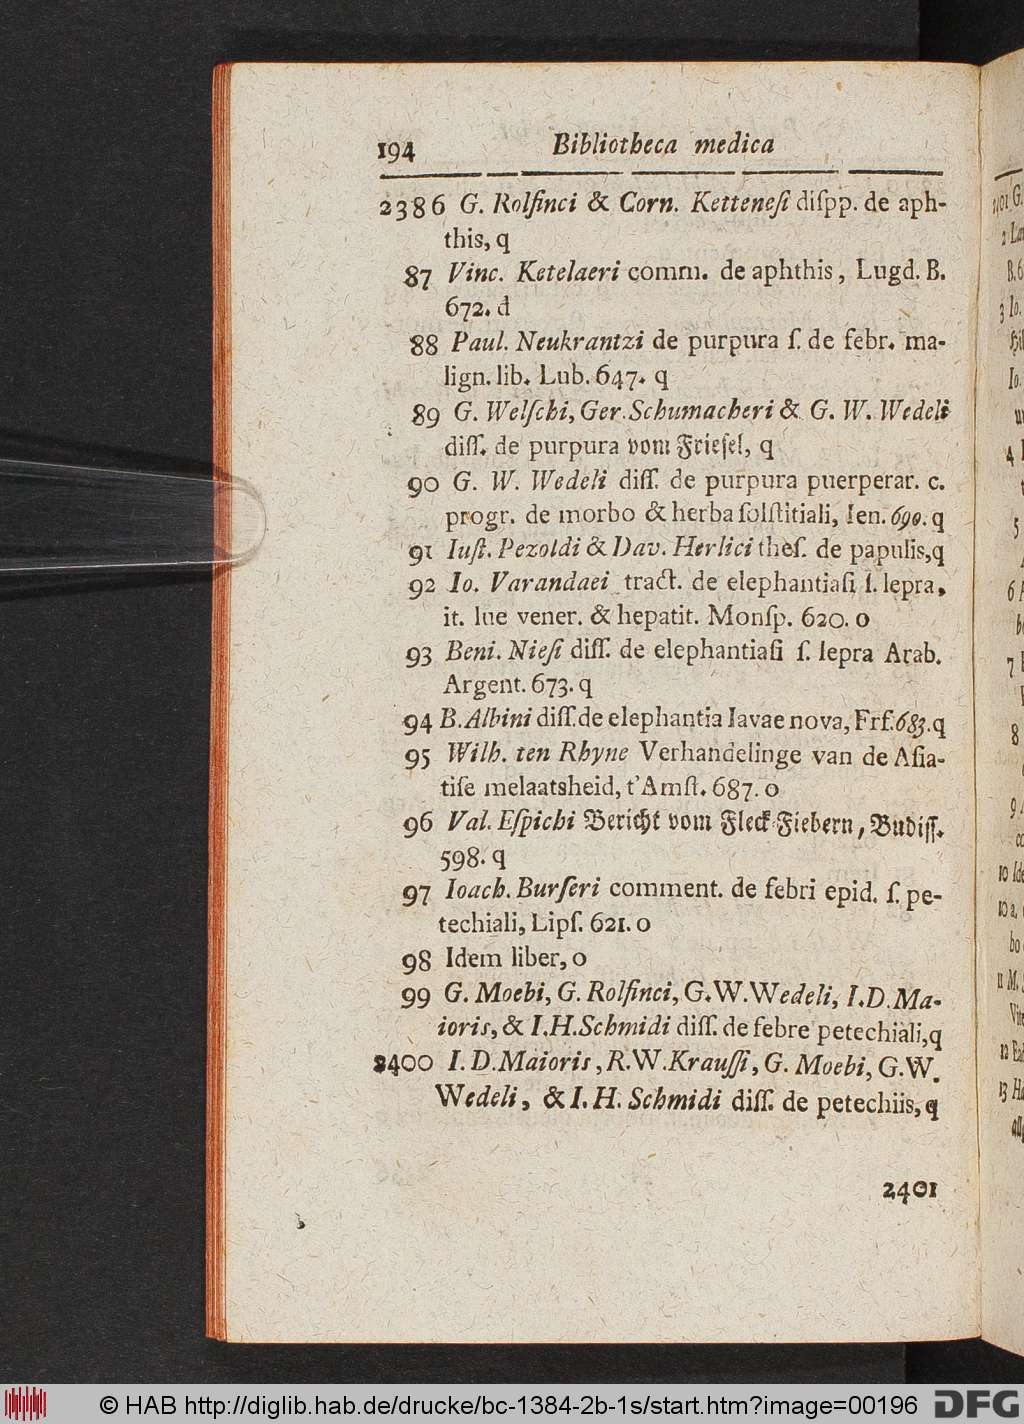 194 Bibliotheca medica
2386 G. Rolfinci & Corn. Ketteneſi diſpp. de aph-
this, q
87 Vinc. Ketelaeri comm. de aphthis, Lugd. B.
672. d
88 Paul. Neukrantzi de purpura ſ. de febr. ma-
lign. lib. Lub. 647. q
89 G. Welſchi, Ger. Schumacheri & G. W. Wedeli
diſſ. de purpura vom Frieſel, q
90 G. W. Wedeli diſſ. de purpura puerperar. c.
progr. de morbo & herba ſolſtitiali, Ien. 690. q
91 Iuſt. Pezoldi & Dav. Herlici theſ. de papulis, q
92 Io. Varandaei tract. de elephantiaſi ſ. lepra,
it. lue vener. & hepatit. Monſp. 620. o
93 Beni. Nieſi diſſ. de elephantiaſi ſ. lepra Arab.
Argent. 673. q
94 B. Albini diſſ. de elephantia Iavae nova, Frf. 683. q
95 Wilh. ten Rhyne Verhandelinge van de Aſia-
tiſe melaatsheid, t'Amſt. 687. o
96 Val. Eſpichi Bericht vom Fleck-Fiebern, Budiſſ.
598. q
97 Ioach. Burſeri comment. de febri epid. ſ. pe-
techiali, Lipſ. 621. o
98 Idem liber, o
99 G. Moebi, G. Rolfinci, G. W. Wedeli, I. D. Ma-
ioris, & I. H. Schmidi diſſ. de febre petechiali, q
2400 I. D. Maioris, R. W. Krauſſi, G. Moebi, G. W.
Wedeli, & I. H. Schmidi diſſ. de petechiis, q
2401
© HAB http://diglib.hab.de/drucke/bc-1384-2b-1s/start.htm?image=00196
DFG